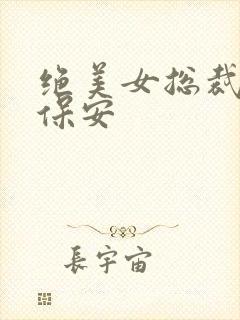 绝美女总裁
保安
長宇宙